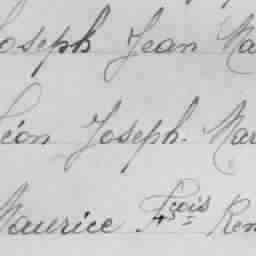 Joseph Jean Ma
Léon Joseph. Mar
Maurice Louis Ren